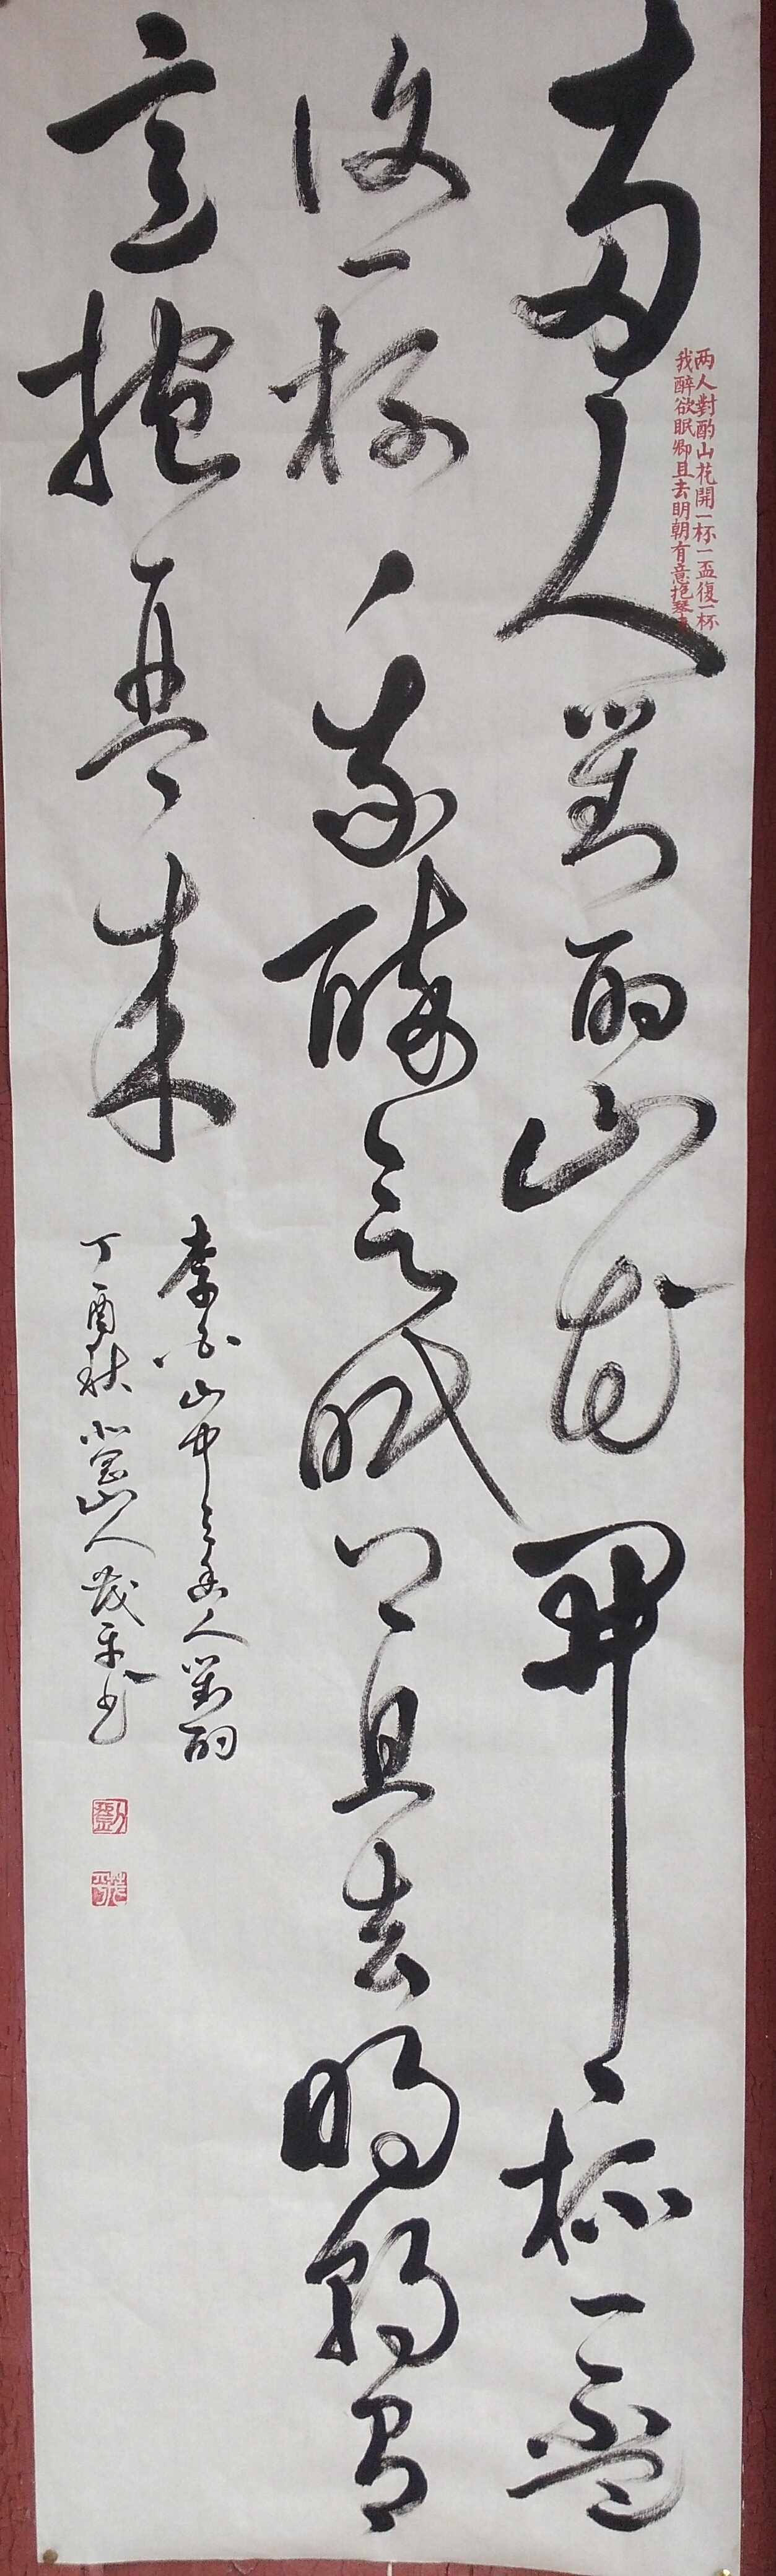 両人對酌山花開一杯一盃
復一杯我醉意眠卿且去明朝有
意抱琴来
两人對酌山花開一杯一盃復一杯
我醉欲眠卿且去明朝有意抱琴来
李白山中與幽人對酌
丁酉秋 山人茂平书
劉